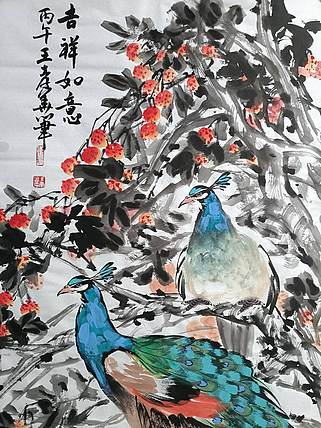 吉祥如意
丙午王彦华筆